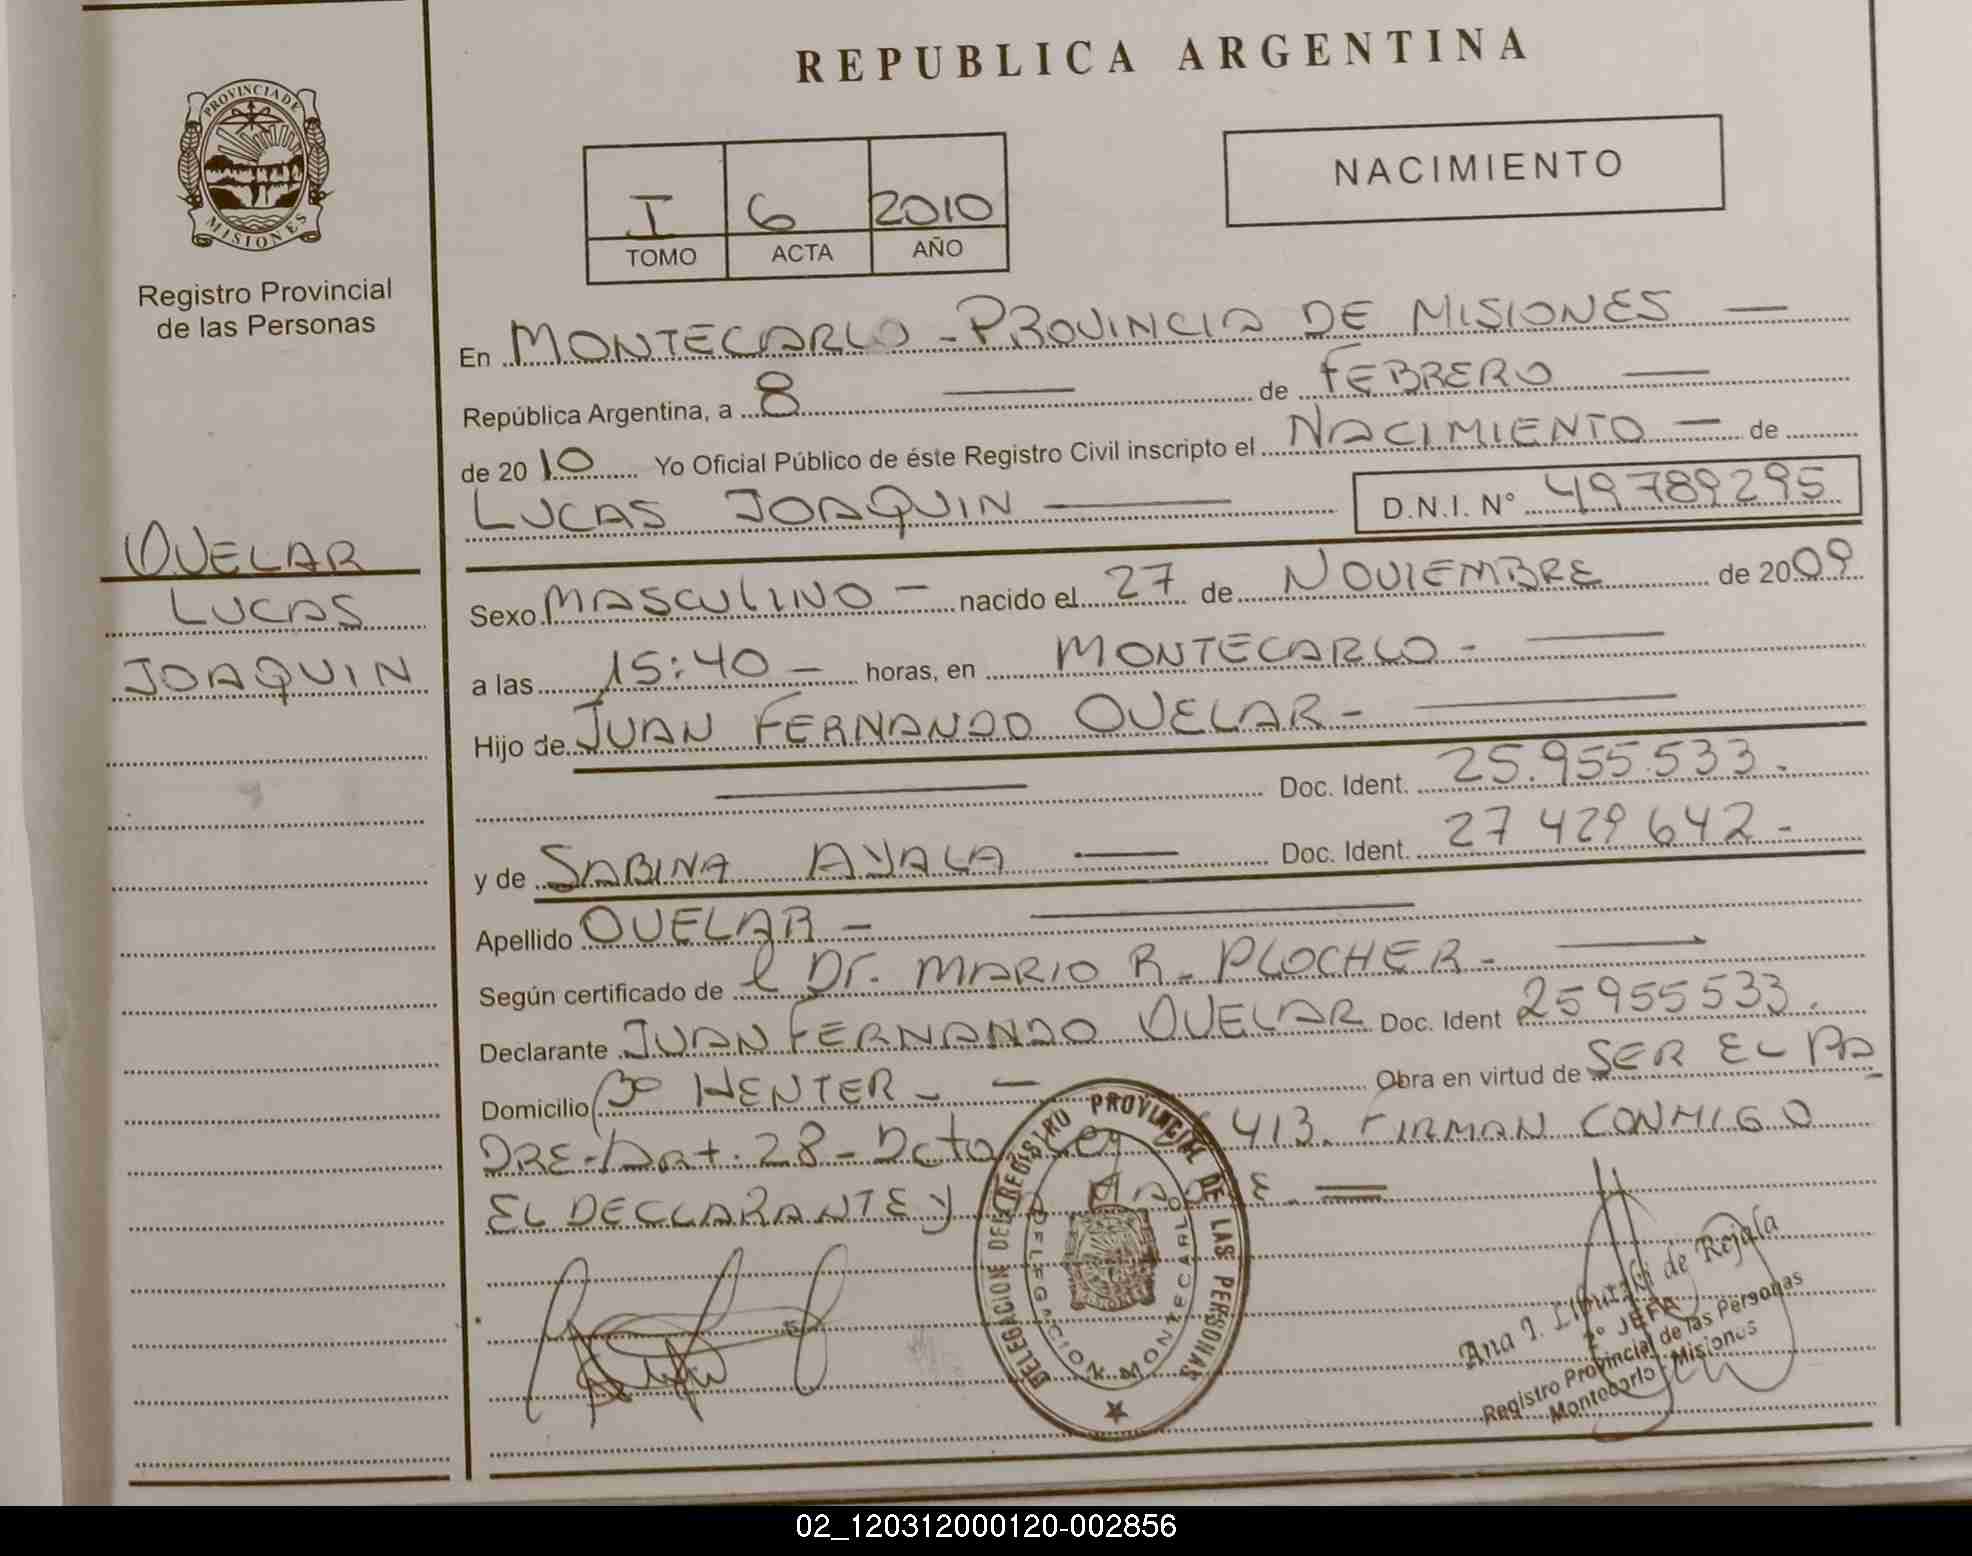 REPUBLICA ARGENTINA
PROVINCIA DE
MISIONES
Registro Provincial
de las Personas
I 6 2010
TOMO ACTA AÑO
NACIMIENTO
En MONTECARLO - PROVINCIA DE MISIONES —
República Argentina, a 8 — de FEBRERO —
de 2010 Yo Oficial Público de éste Registro Civil inscripto el NACIMIENTO — de
LUCAS JOAQUIN — D.N.I. N° 49789295
OVELAR
LUCAS
JOAQUIN
Sexo MASCULINO — nacido el 27 de NOVIEMBRE de 2009
a las 15:40 — horas, en MONTECARLO - —
Hijo de JUAN FERNANDO OVELAR - —
— Doc. Ident. 25.955.533.
y de SABINA AYALA — Doc. Ident. 27 429 642 -
Apellido OVELAR - —
Según certificado de l Dr. MARIO R. PLOCHER - —
Declarante JUAN FERNANDO OVELAR Doc. Ident 25955533.
Domicilio Bº HENTER - — Obra en virtud de SER EL PA
DRE - Art. 28 - Dcto 413. FIRMAN CONMIGO
EL DECLARANTE Y LA MADRE. —
DELEGACION DEL REGISTRO PROVINCIAL DE LAS PERSONAS
DELEGACION MONTECARLO
Ana I. de Rejala
2º JEFA
Registro Provincial de las Personas
Montecarlo Misiones
02_120312000120-002856